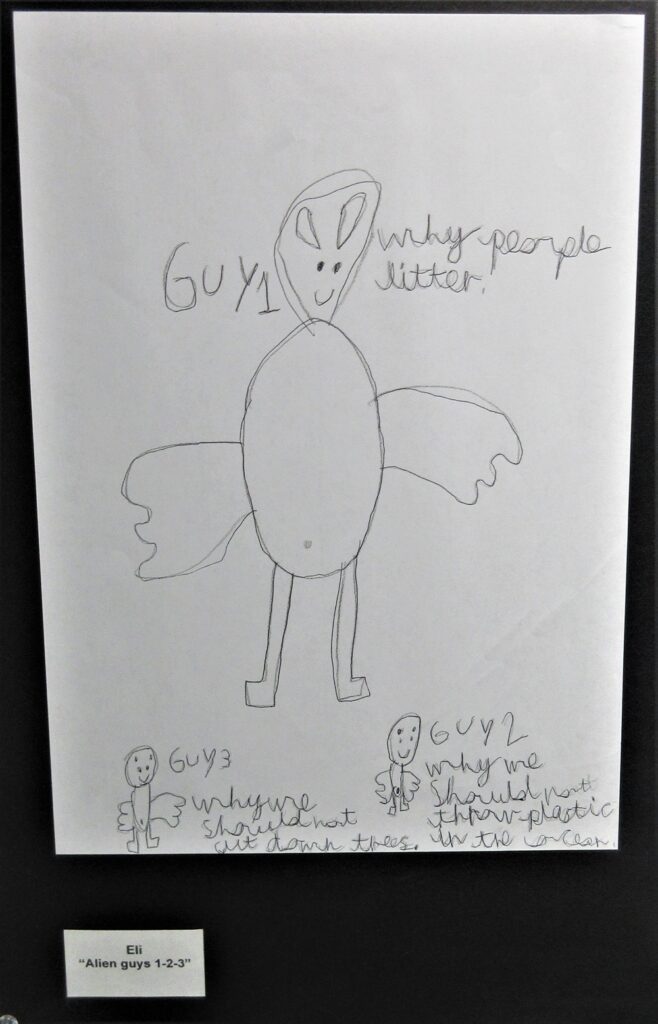 GUY1
why people
litter.
GUY2
why we
should nott
throw plastic
in the
GUY3
why we
should not
cut down trees.
Eli
"Alien guys 1-2-3"